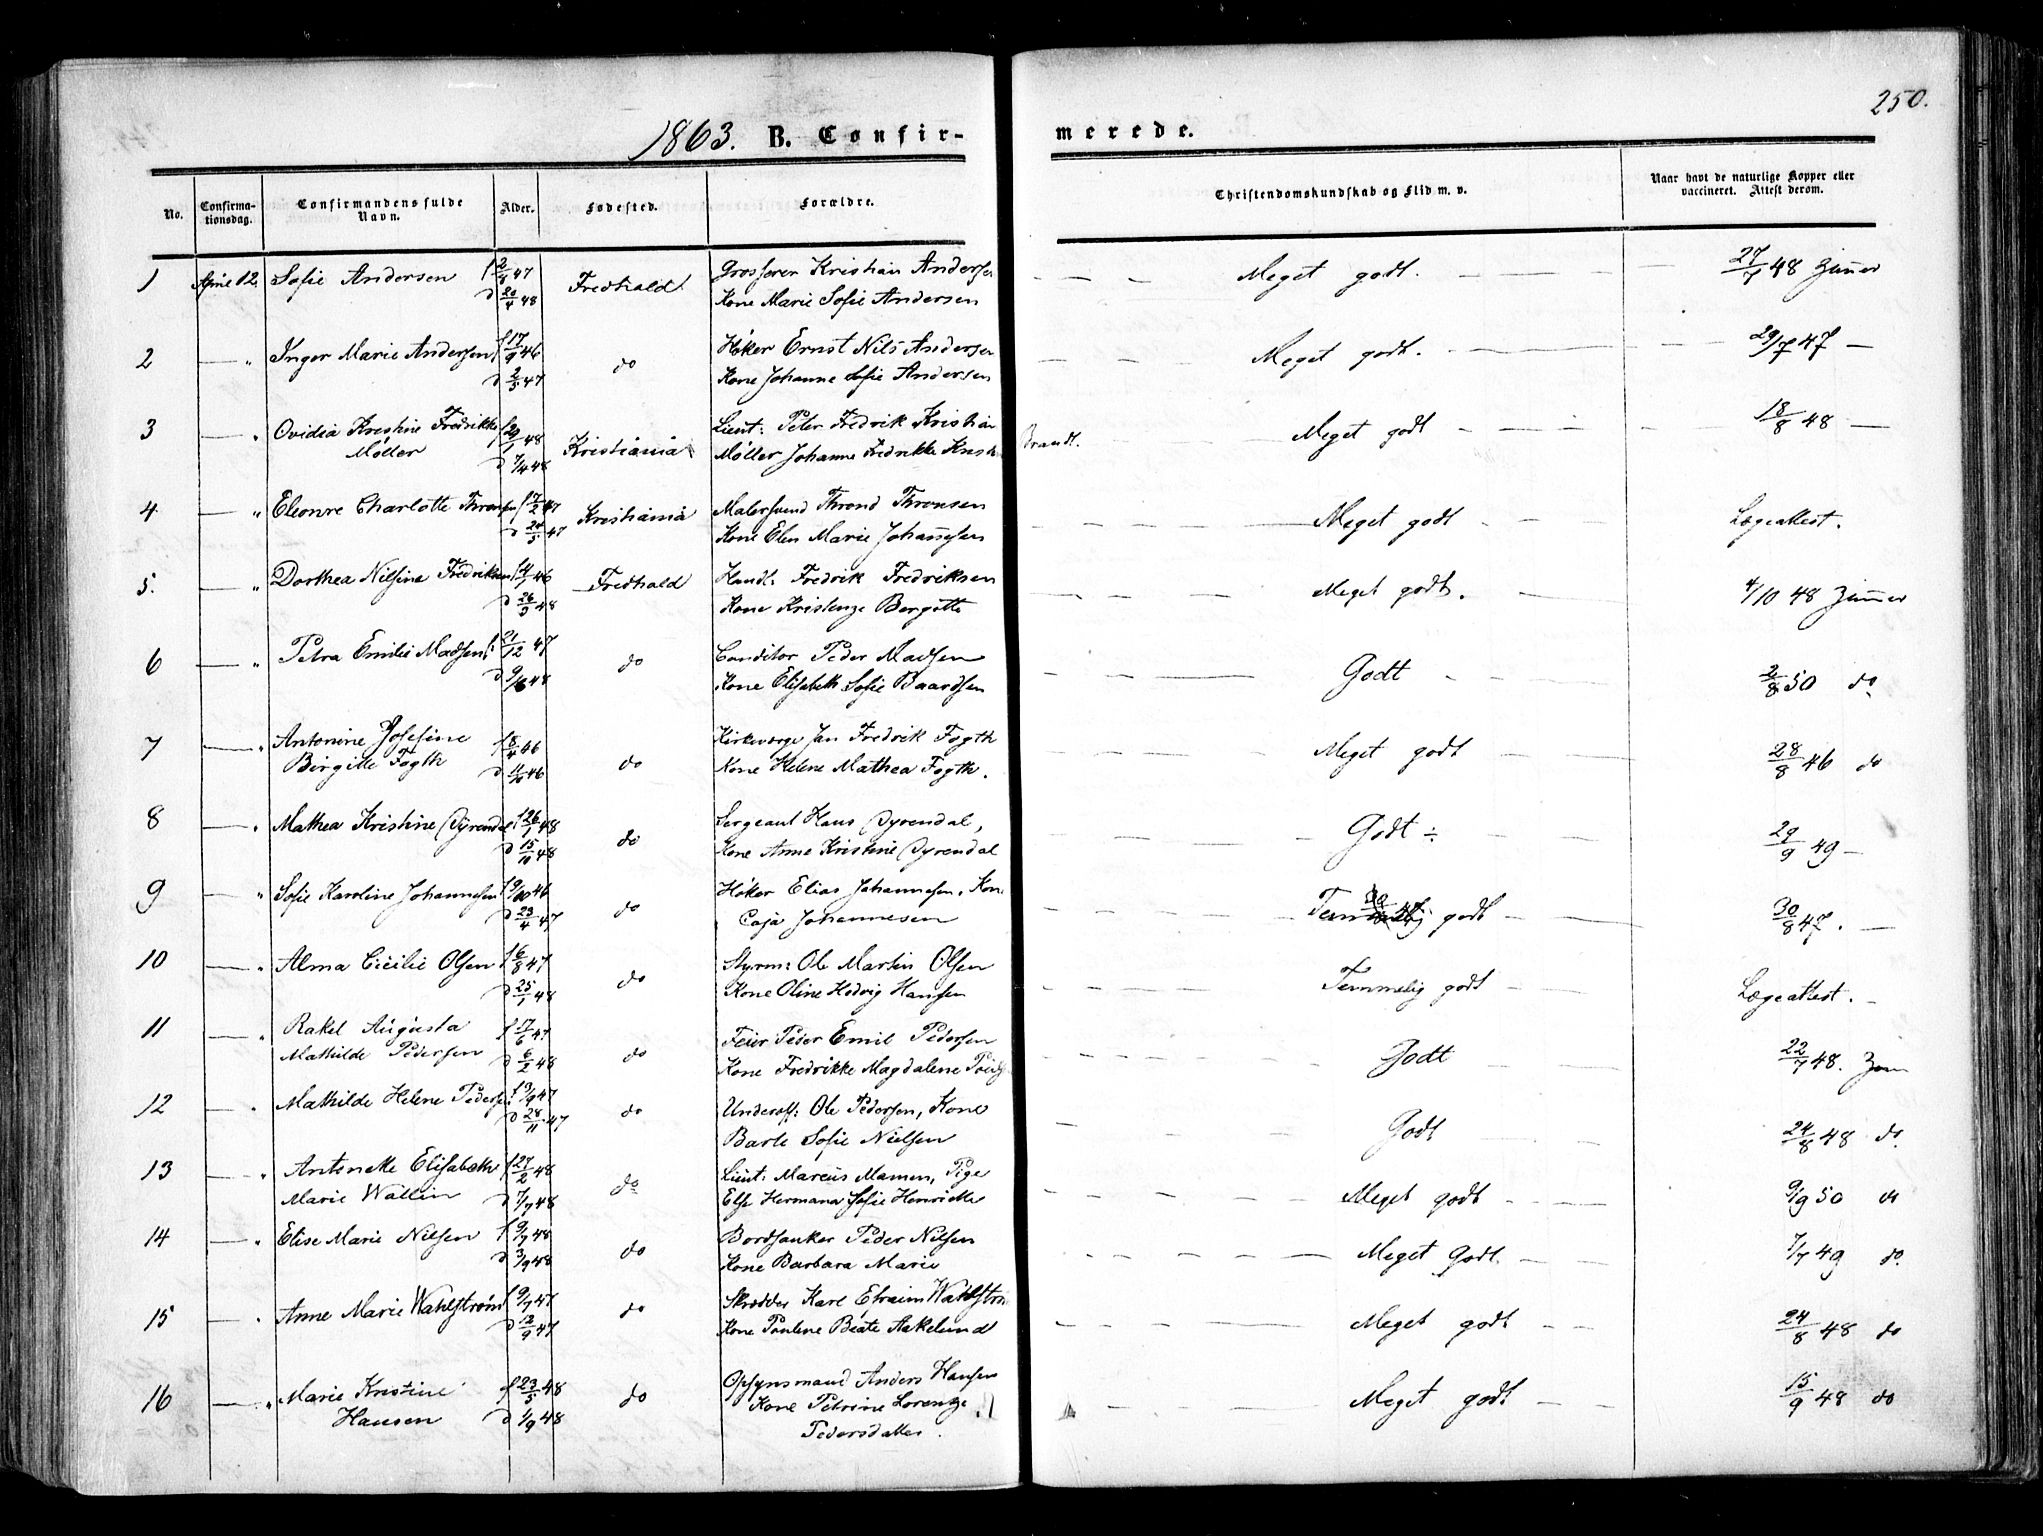 250.
1863. B. Confir-merede.
No. Confirma-tionsdag. Confirmandens fulde Navn. Alder. Fødested. Forældre. Christendomskundskab og Flid m. v. Naar havt de naturlige Kopper eller vaccineret. Attest derom.
1 April 12. Sofie Andersen f 2/4 47 Fredhald Grosserer Kristian Andersen Meget godt. 27/7 48 Zimer
d 20/4 48 Kone Marie Sofie Andersen
2 — " Inger Marie Andersen f 17/9 46 do Høker Ernst Nils Andersen Meget godt. 29/7 47 —
d 2/5 47 Kone Johanne Sofie Andersen
3 — " Ovidia Kristine Fredrikke f 29/1 48 Kristiania Lieut: Peter Fredrik Kristian Meget godt 18/8 48 —
Møller d 7/4 48 Møller Johanne Fredrikke Krist Brandt.
4 — " Eleonre Charlotte Thronsen f 17/2 47 Kristiania Malersvend Thrond Thronsen Meget godt Lægeattest.
d 24/5 47 Kone Elen Marie Johannesen
5. — " Dorthea Nilsine Fredriksen f 14/1 46 Fredhald Handl: Fredrik Fredriksen Meget godt. 4/10 48 Zimer
d 26/3 48 Kone Kristenze Bergitte
6 — " Petra Emilie Madsen f 21/12 47 do Conditor Peder Madsen Godt 2/8 50 do
d 9/6 48 Kone Elisabeth Sofie Baardsen
7 — " Antonine Josefine f 8/4 46 do Kirkeværge Jan Fredrik Fogth Meget godt 28/8 46 do
Birgitte Fogth d 11/10 46 Kone Helene Mathea Fogth.
8 — " Mathea Kristine Dyrendal f 26/1 48 do Sergeant Hans Dyrendal, Godt ÷ 29/9 49 —
d 15/10 48 Kone Anne Kristine Dyrendal
9 — " Sofie Karoline Johannesen f 9/10 46 do Høker Elias Johannesen, Kone Temmelig godt 30/8 47. —
d 23/4 47 Caja Johannesen
10 — " Alma Cicilie Olsen f 6/8 47 do Styrm: Ole Martin Olsen Temmelig godt Lægeattest. —
d 25/1 48 Kone Oline Hedvig Hansen
11 — " Rakel Augusta f 17/6 47 do Feier Peder Emil Pedersen Godt 22/7 48. Zim
Mathilde Pedersen d 6/2 48 Kone Fredrikke Magdalene
12 — " Mathilde Helene Pedersen f 13/9 47 do Underoff: Ole Pedersen, Kone Godt 24/8 48 do
d 28/11 47 Barte Sofie Nielsen
13 — " Antonette Elisabeth f 27/2 48 do Lieut: Marcus Mamen, Pige Meget godt 9/9 50 do
Marie Wallin d 7/7 48 Else Hermana Sofie Henriette
14 — " Elise Marie Nilsen f 9/7 48 do Bordsanker Peder Nilsen Meget Godt 7/7 49 do.
d 3/9 48 Kone Barbara Marie
15 — " Anne Marie Wahlstrøm f 9/7 47 do Skrædder Karl Efraim Wahlstrøm Meget godt 24/8 48 do
d 12/9 47 Kone Pauline Beate Aakelund
16 — " Marie Kristine f 23/5 48 do Opsynsmand Anders Hansen Meget godt 15/9 48 do
Hansen d 1/9 48 Kone Petrine Lorenze
Pedersdatter.